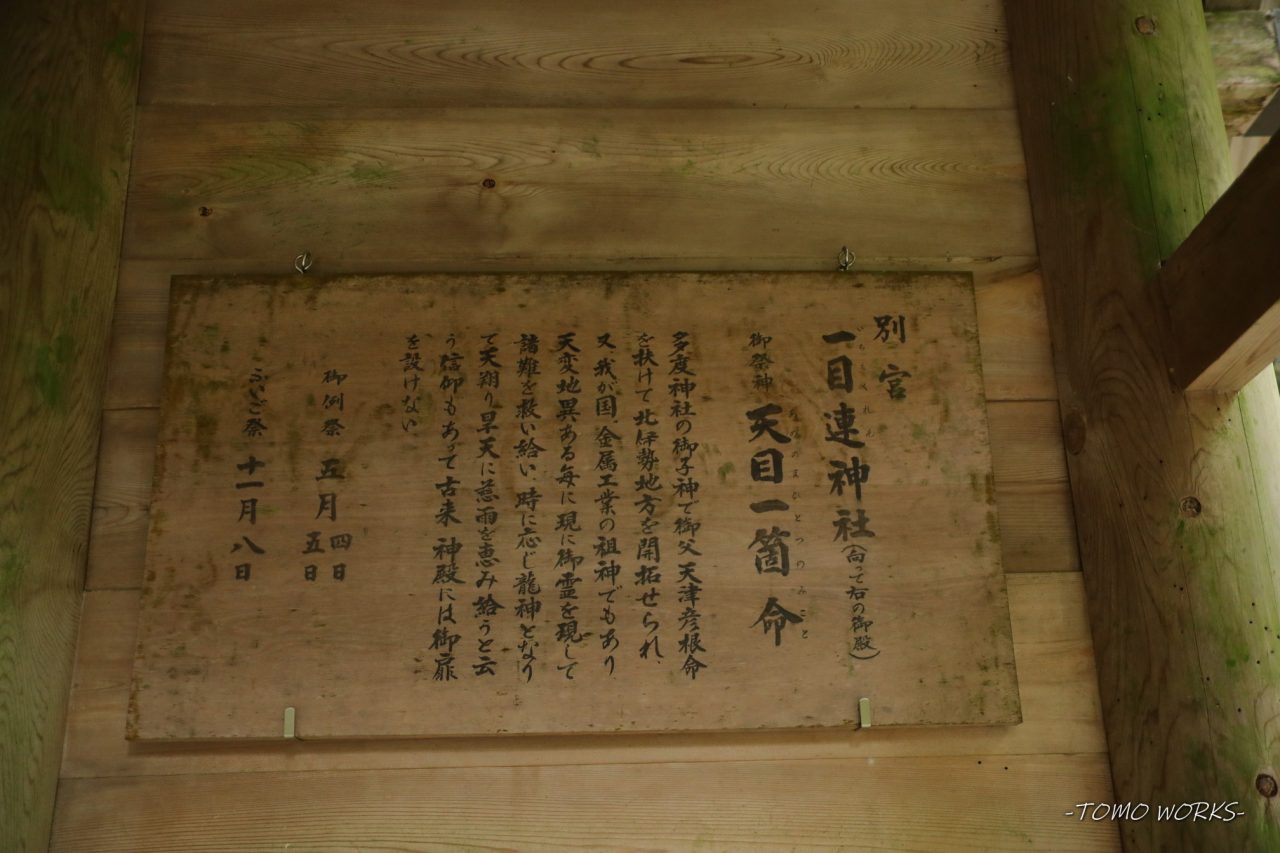 別宮
一目連神社(向って右の御殿)
いちもくれん
御祭神 天目一箇命
あめのまひとつのみこと
多度神社の御子神で御父天津彦根命
を扶けて北伊勢地方を開拓せられ、
又我が国、金属工業の祖神でもあり
天変地異ある毎に現に御霊を現して
諸難を救い給い、時に応じ龍神となり
て天翔り旱天に慈雨を恵み給うと云
う信仰もあって古来 神殿には御扉
を設けない、
御例祭 五月 四日 五日
ふいご祭 十一月 八日
-TOMO WORKS-